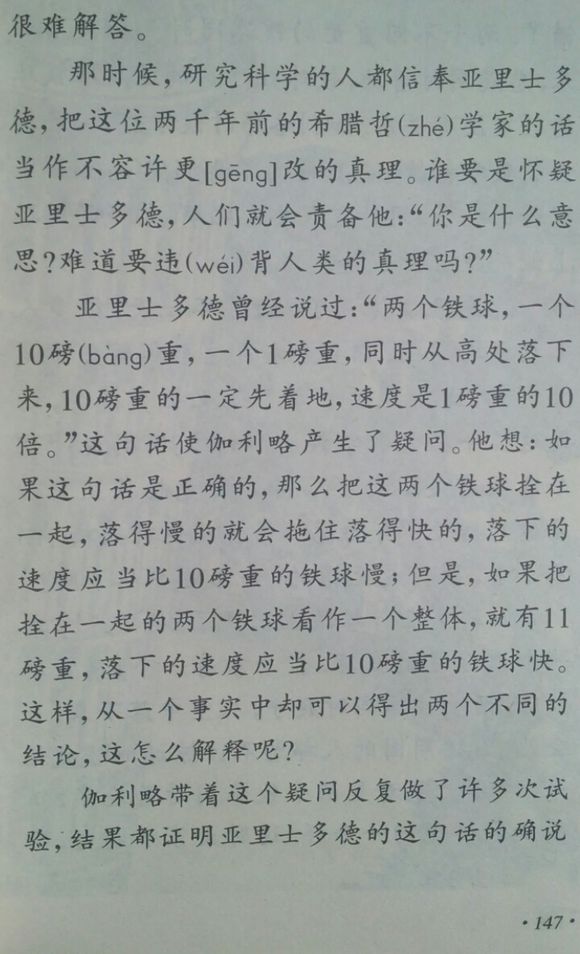 很难解答。
那时候，研究科学的人都信奉亚里士多
德，把这位两千年前的希腊哲(zhé)学家的话
当作不容许更[gēng]改的真理。谁要是怀疑
亚里士多德，人们就会责备他：“你是什么意
思？难道要违(wéi)背人类的真理吗？”
亚里士多德曾经说过：“两个铁球，一个
10磅(bàng)重，一个1磅重，同时从高处落下
来，10磅重的一定先着地，速度是1磅重的10
倍。”这句话使伽利略产生了疑问。他想：如
果这句话是正确的，那么把这两个铁球拴在
一起，落得慢的就会拖住落得快的，落下的
速度应当比10磅重的铁球慢；但是，如果把
拴在一起的两个铁球看作一个整体，就有11
磅重，落下的速度应当比10磅重的铁球快。
这样，从一个事实中却可以得出两个不同的
结论，这怎么解释呢？
伽利略带着这个疑问反复做了许多次试
验，结果都证明亚里士多德的这句话的确说
·147·